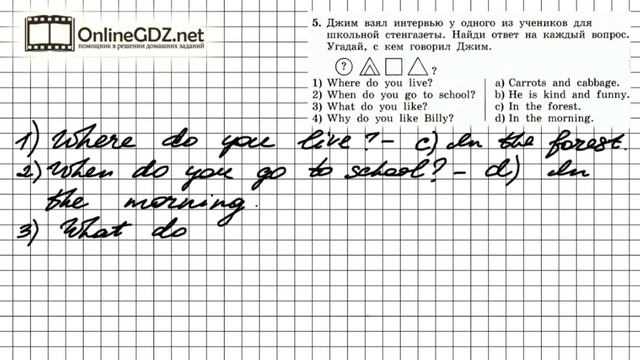 OnlineGDZ.net
помощник в решении домашних заданий
5. Джим взял интервью у одного из учеников для
школьной стенгазеты. Найди ответ на каждый вопрос.
Угадай, с кем говорил Джим.
? ?
1) Where do you live?
2) When do you go to school?
3) What do you like?
4) Why do you like Billy?
a) Carrots and cabbage.
b) He is kind and funny.
c) In the forest.
d) In the morning.
1) Where do you live? - c) In the forest.
2) When do you go to school? - d) In
the morning.
3) What do